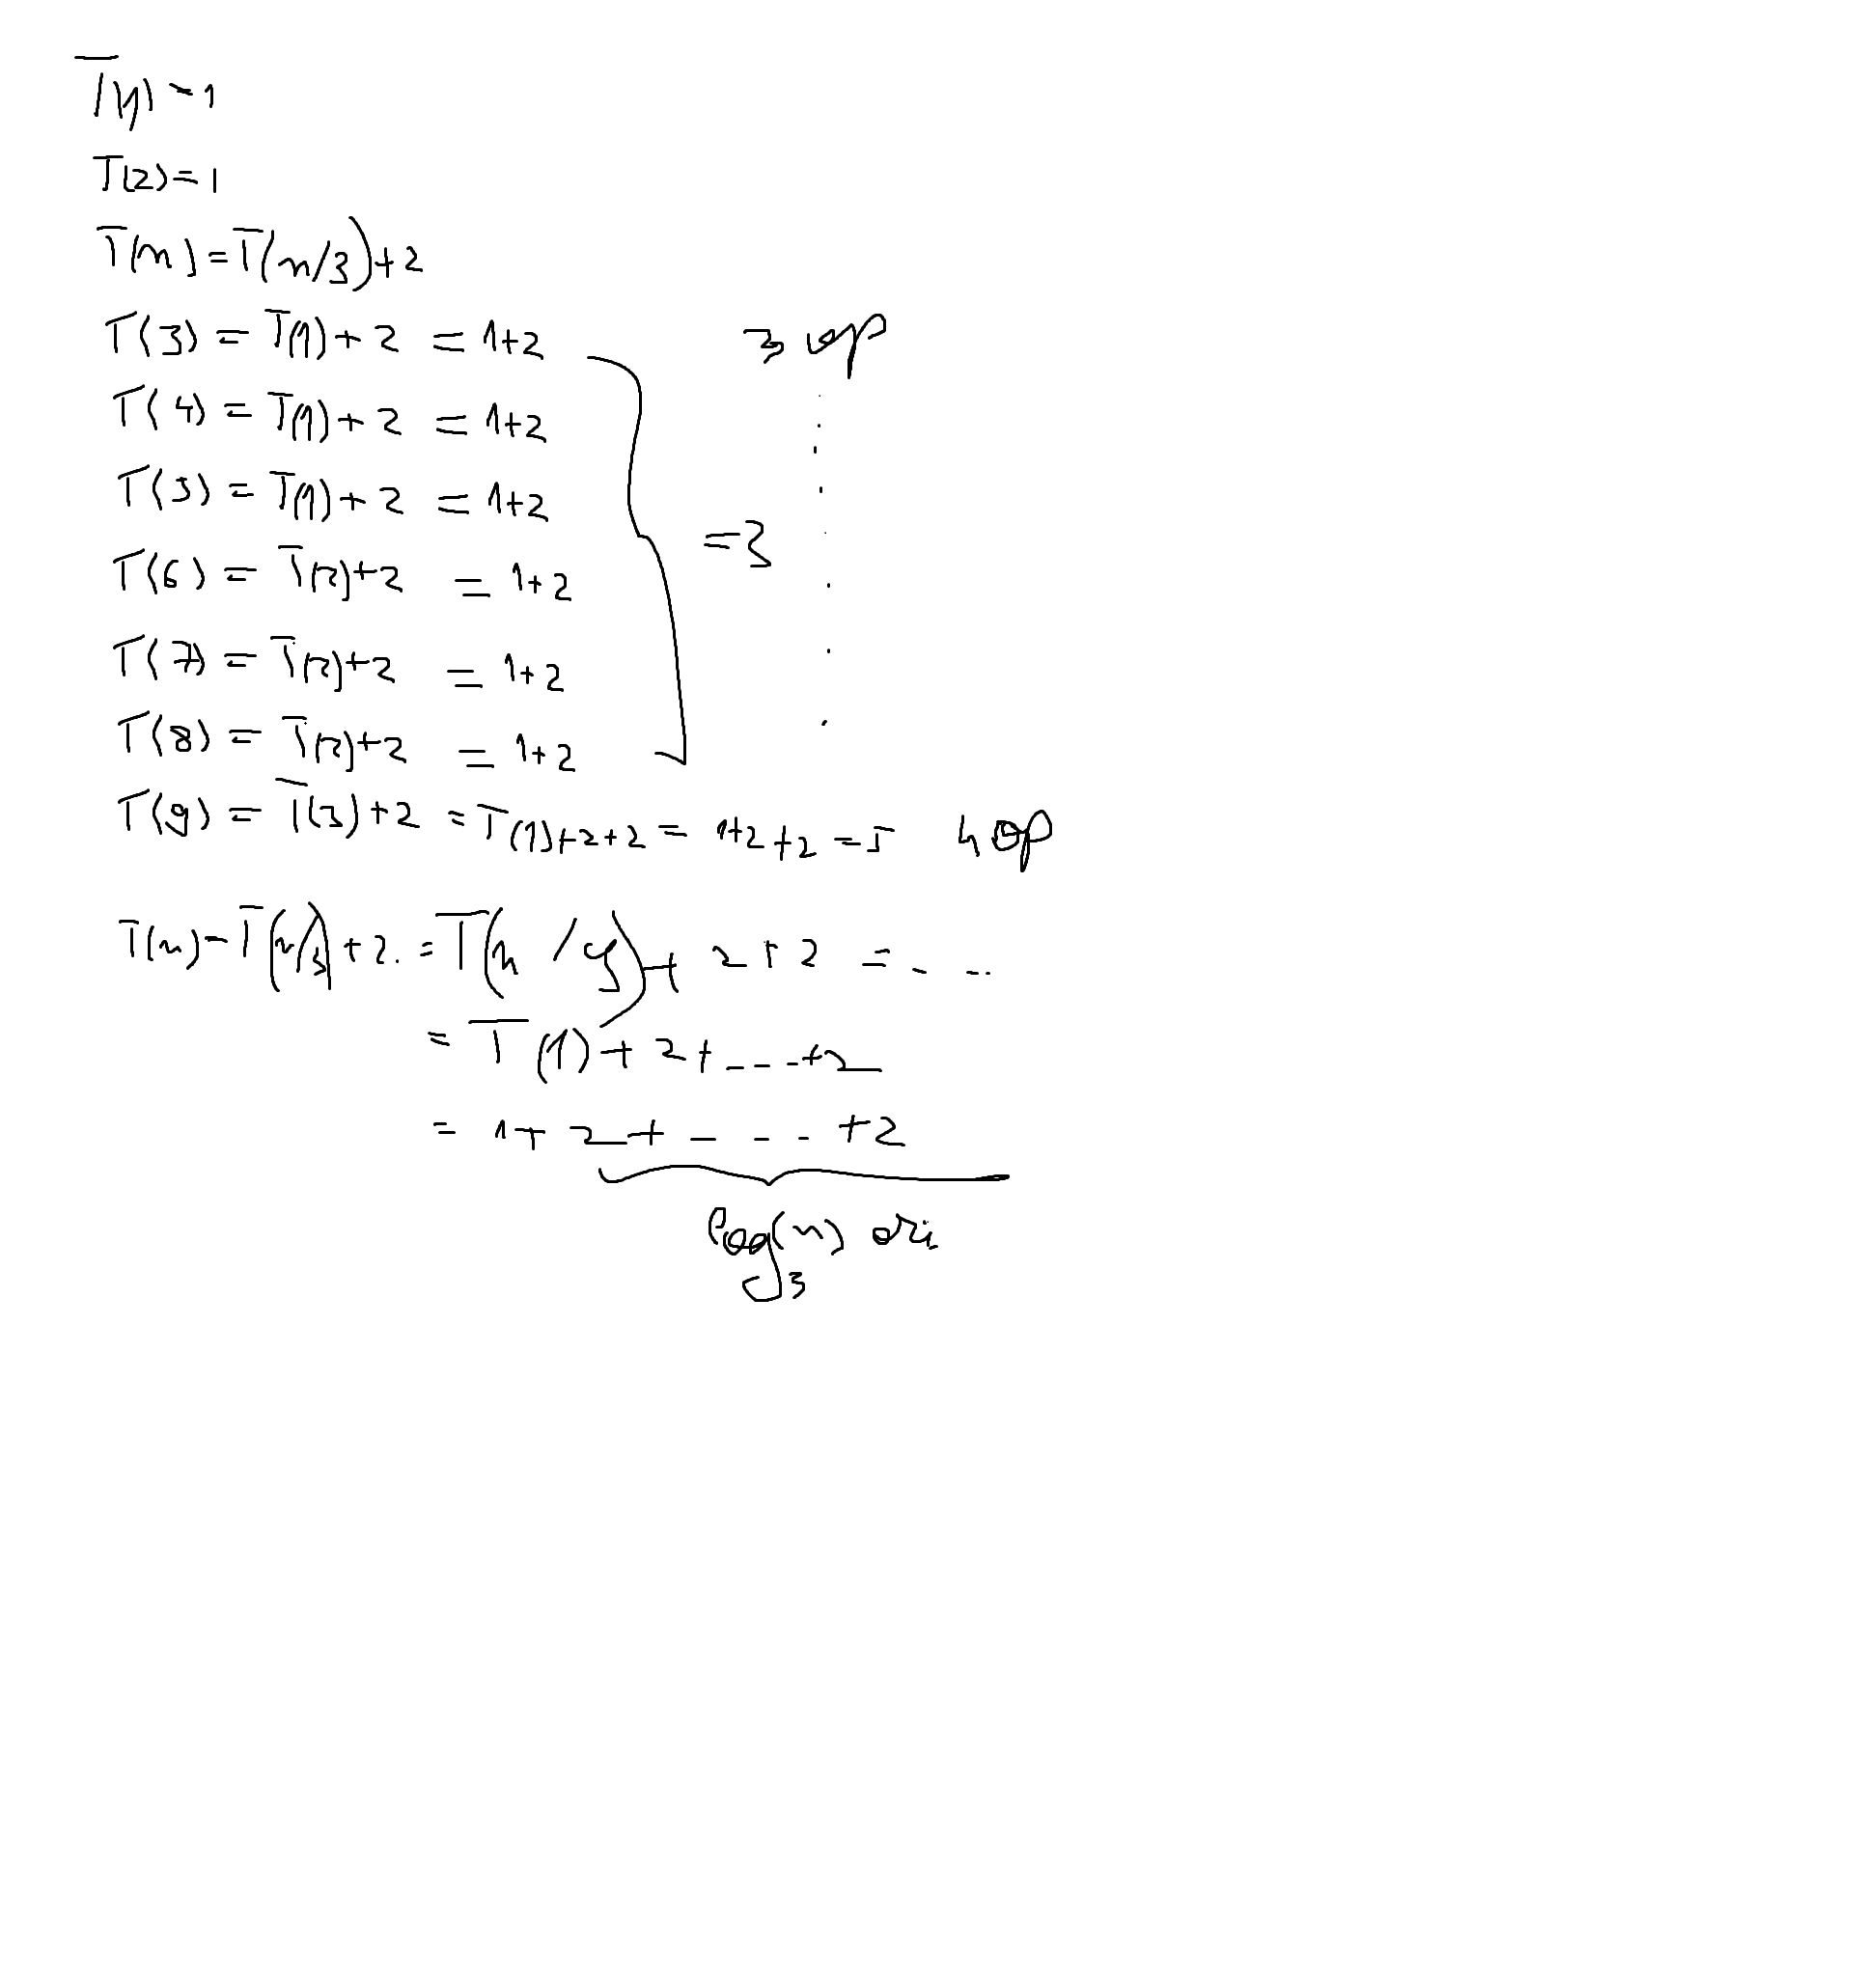 T(1) = 1
T(2) = 1
T(n) = T(n/3) + 2
T(3) = T(1) + 2 = 1+2 3 op
T(4) = T(1) + 2 = 1+2
T(5) = T(1) + 2 = 1+2
= 3
T(6) = T(2) + 2 = 1+2
T(7) = T(2) + 2 = 1+2
T(8) = T(2) + 2 = 1+2
T(9) = T(3) + 2 = T(1) + 2 + 2 = 1+2+2 = 5 4 op
T(n) = T(n/3) + 2 = T(n/9) + 2 + 2 = ...
= T(1) + 2 + ... + 2
= 1 + 2 + ... + 2
log₃(n) ori